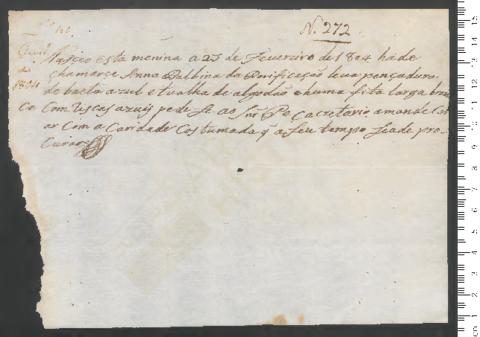 N. 272
Abril
de
1804
Nasceo esta menina a 23 de Fevereiro de 1804 ha de
chamarçe Anna Balbina da Purificação leva pençaduro
de baeta azul e tualha de algodão e huma fita larga bran
ca Com riscas azuis pede Se ao Snr Pe Çacretario a mande Cri
ar Com a Caridade Costumada q a Seu tempo Se a de pro
Curar